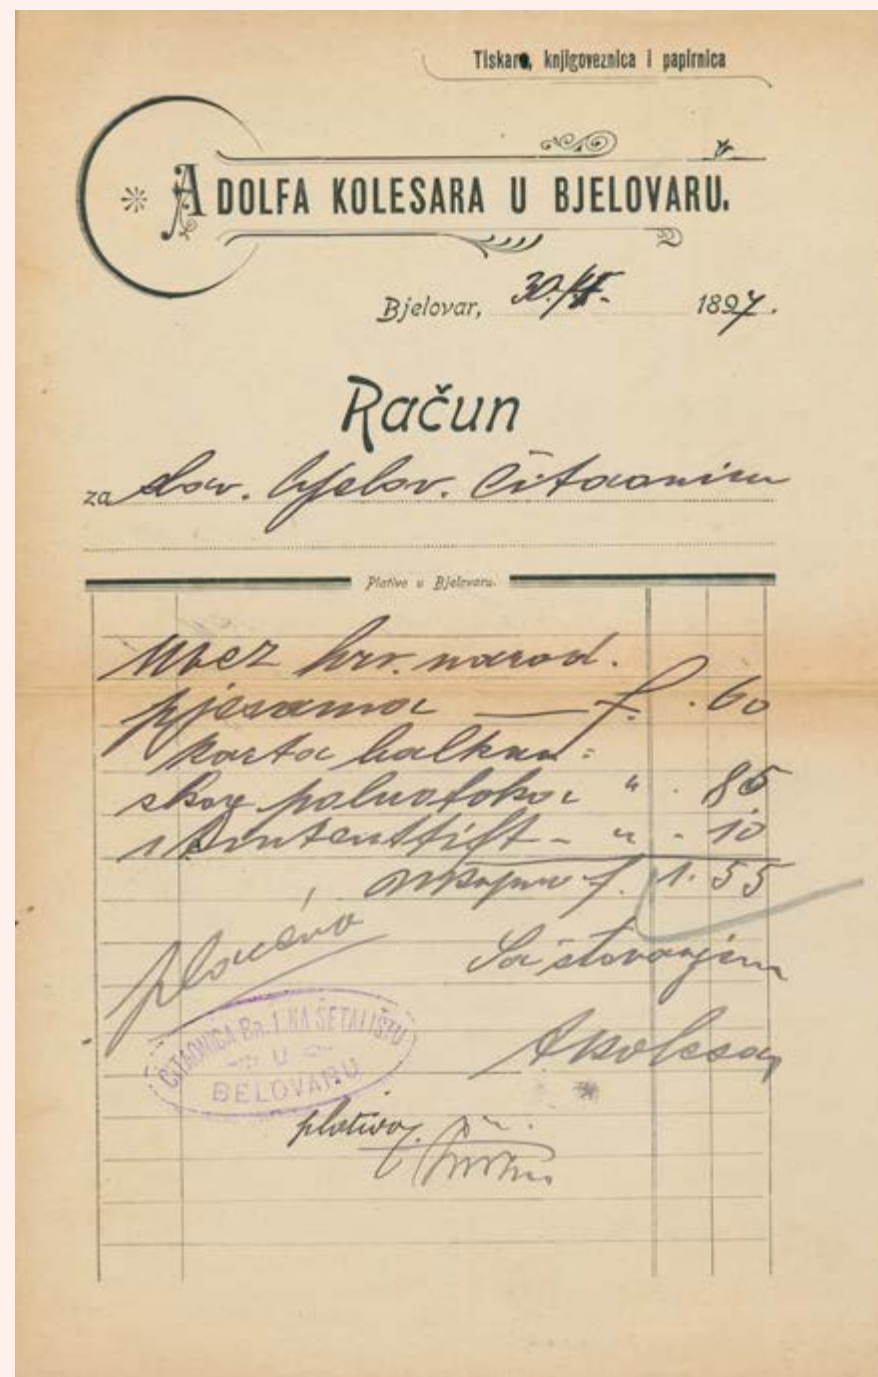 Tiskara, knjigoveznica i papirnica
ADOLFA KOLESARA U BJELOVARU.
Bjelovar, 30/ 1897.
Račun
za slav. bjelov. Čitaonicu
Plativo u Bjelovaru.
hrv. narod.
pjesama — f. . 60
Karta balkan=
skog poluotoka " . 85
1 Tintenstift - " - 10
Ukupno f. 1. 55
plaćeno
Sa štovanjem
AKolesar
ČITAONICA BR. 1 NA ŠETALIŠTU
U
BELOVARU